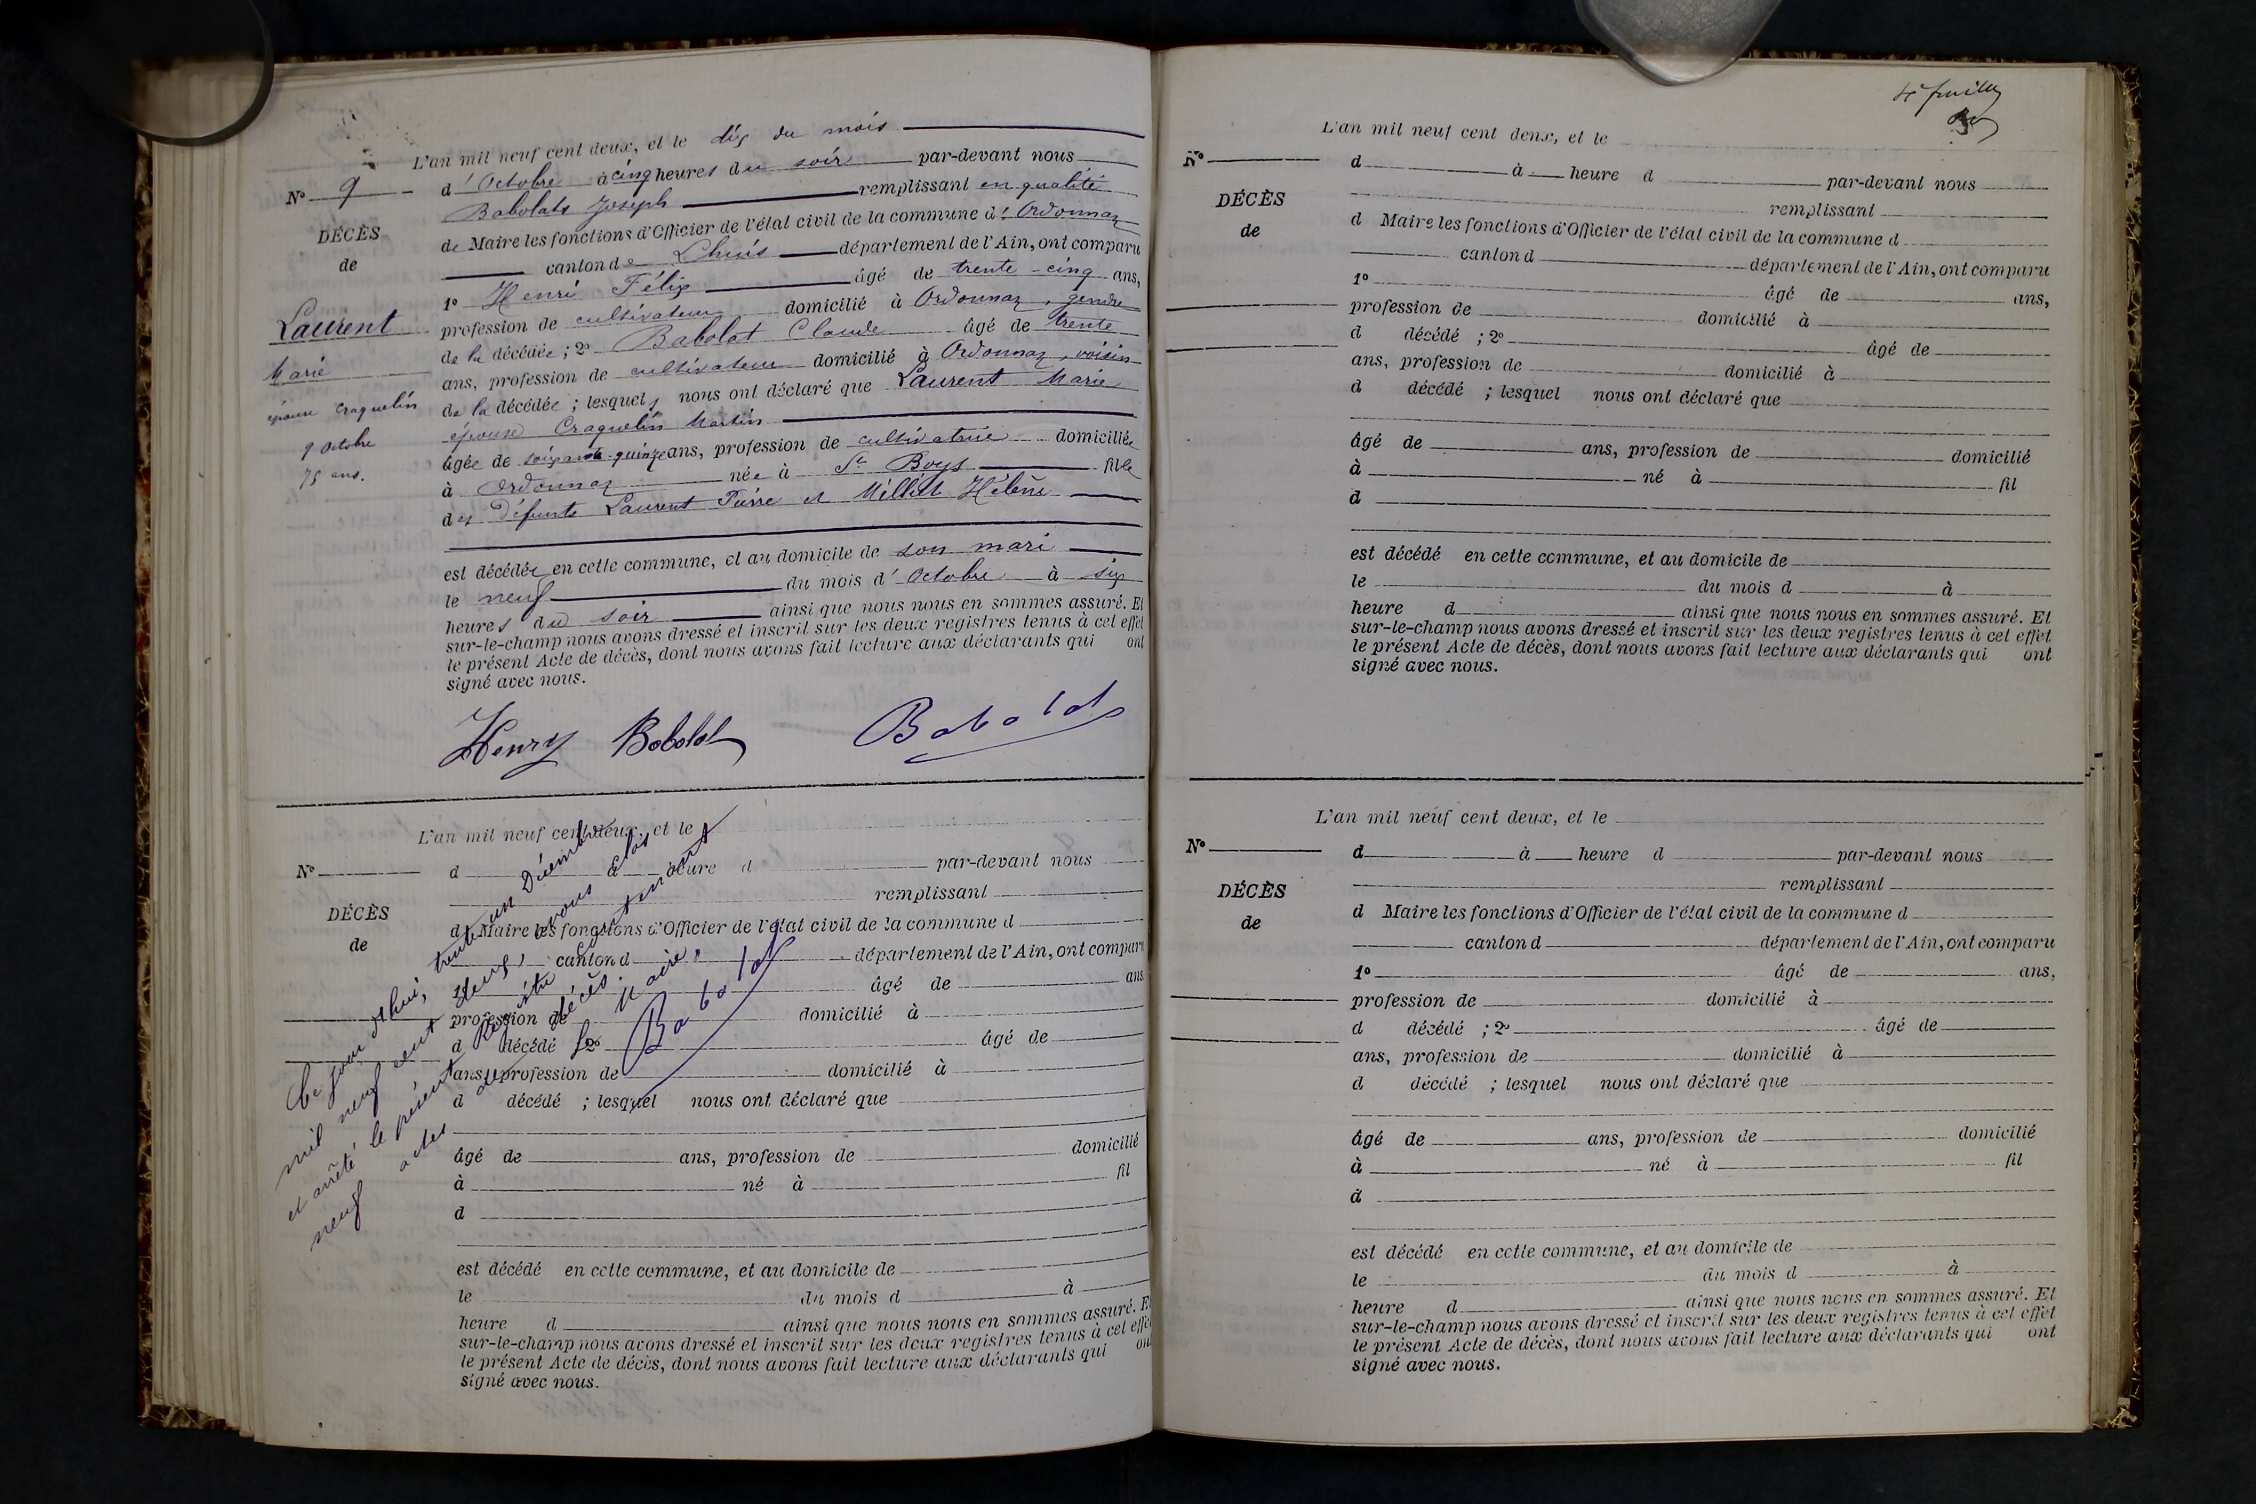 L'an mil neuf cent deux, et le dix du mois
N° 9
d'Octobre à cinq heures du soir par-devant nous
Babolat Joseph remplissant en qualité
DÉCÈS
de
de Maire les fonctions d'Officier de l'état civil de la commune d'Ordonnaz
canton de Lhuis département de l'Ain, ont comparu
1° Henri Félix âgé de trente-cinq ans,
Laurent
Marie
épouse Craquelin
9 octobre
75 ans.
profession de cultivateur domicilié à Ordonnaz, gendre
de la décédée ; 2° Babolat Claude âgé de trente
ans, profession de cultivateur domicilié à Ordonnaz, voisin
de la décédée ; lesquels nous ont déclaré que Laurent Marie
épouse Craquelin Martin
âgée de soixante-quinze ans, profession de cultivatrice domiciliée
à Ordonnaz née à St Boys fille
des défunts Laurent Pierre et Millet Hélène
est décédée en cette commune, et au domicile de son mari
le neuf du mois d'Octobre à six
heures du soir ainsi que nous nous en sommes assuré. Et
sur-le-champ nous avons dressé et inscrit sur les deux registres tenus à cet effet
le présent Acte de décès, dont nous avons fait lecture aux déclarants qui ont
signé avec nous.
Henry Babolat Babolat
L'an mil neuf cent deux, et le
N°
d à heure d par-devant nous
remplissant
DÉCÈS
de
d Maire les fonctions d'Officier de l'état civil de la commune d
canton d département de l'Ain, ont comparu
1° âgé de ans
profession de domicilié à
d décédé ; 2° âgé de
ans, profession de domicilié à
d décédé ; lesquel nous ont déclaré que
âgé de ans, profession de domicilié
à né à fil
d
est décédé en cette commune, et au domicile de
le du mois d à
heure d ainsi que nous nous en sommes assuré. Et
sur-le-champ nous avons dressé et inscrit sur les deux registres tenus à cet effet
le présent Acte de décès, dont nous avons fait lecture aux déclarants qui ont
signé avec nous.
Ce jour d'hui, trente un Décembre
mil neuf cent deux, avons clos
et arrêté le présent Registre contenant
neuf actes de décès.
Le Maire,
Babolat
4e feuillet
L'an mil neuf cent deux, et le
N°
d à heure d par-devant nous
remplissant
DÉCÈS
de
d Maire les fonctions d'Officier de l'état civil de la commune d
canton d département de l'Ain, ont comparu
1° âgé de ans,
profession de domicilié à
d décédé ; 2° âgé de
ans, profession de domicilié à
d décédé ; lesquel nous ont déclaré que
âgé de ans, profession de domicilié
à né à fil
d
est décédé en cette commune, et au domicile de
le du mois d à
heure d ainsi que nous nous en sommes assuré. Et
sur-le-champ nous avons dressé et inscrit sur les deux registres tenus à cet effet
le présent Acte de décès, dont nous avons fait lecture aux déclarants qui ont
signé avec nous.
L'an mil neuf cent deux, et le
N°
d à heure d par-devant nous
remplissant
DÉCÈS
de
d Maire les fonctions d'Officier de l'état civil de la commune d
canton d département de l'Ain, ont comparu
1° âgé de ans,
profession de domicilié à
d décédé ; 2° âgé de
ans, profession de domicilié à
d décédé ; lesquel nous ont déclaré que
âgé de ans, profession de domicilié
à né à fil
d
est décédé en cette commune, et au domicile de
le du mois d à
heure d ainsi que nous nous en sommes assuré. Et
sur-le-champ nous avons dressé et inscrit sur les deux registres tenus à cet effet
le présent Acte de décès, dont nous avons fait lecture aux déclarants qui ont
signé avec nous.